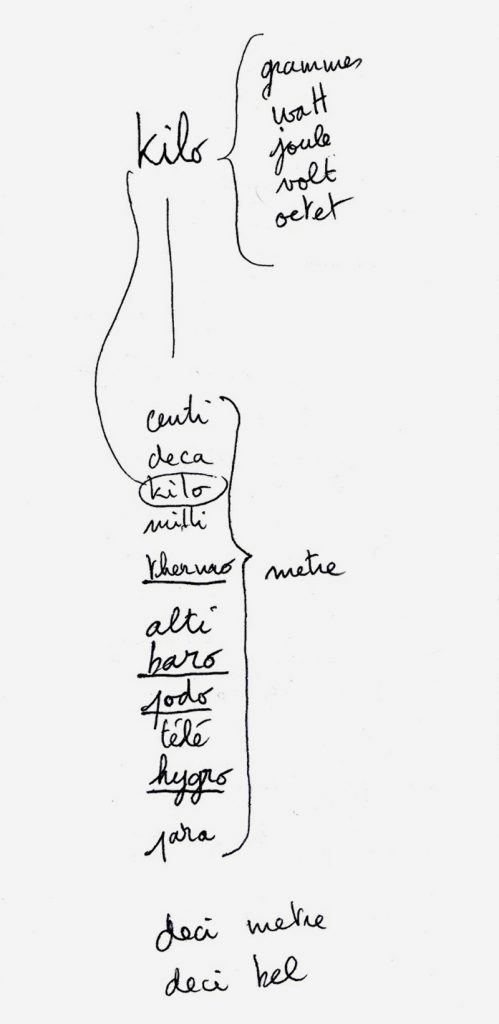 grammes
watt
kilo
joule
volt
octet
centi
deca
kilo
milli
thermo
metre
alti
baro
podo
télé
hygro
para
deci metre
deci bel